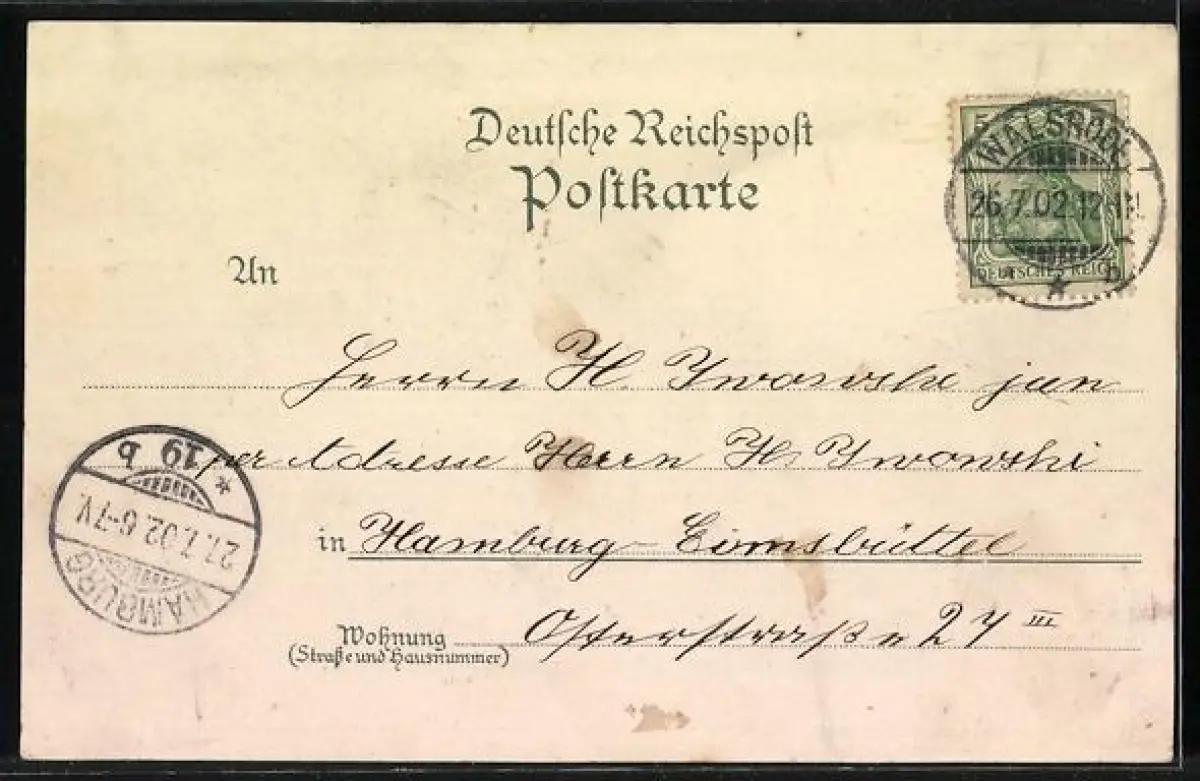 Deutsche Reichspost
Postkarte
5
WALSRODE
26.7.02.12-1N.
* b
DEUTSCHES REICH
An
Herrn H. Iwowski jun
per Adresse Herrn H. Iwowski
in Hamburg-Eimsbüttel
Wohnung Osterstraße 27 III
(Straße und Hausnummer)
HAMBURG
27.7.02.6-7V.
* 19 b